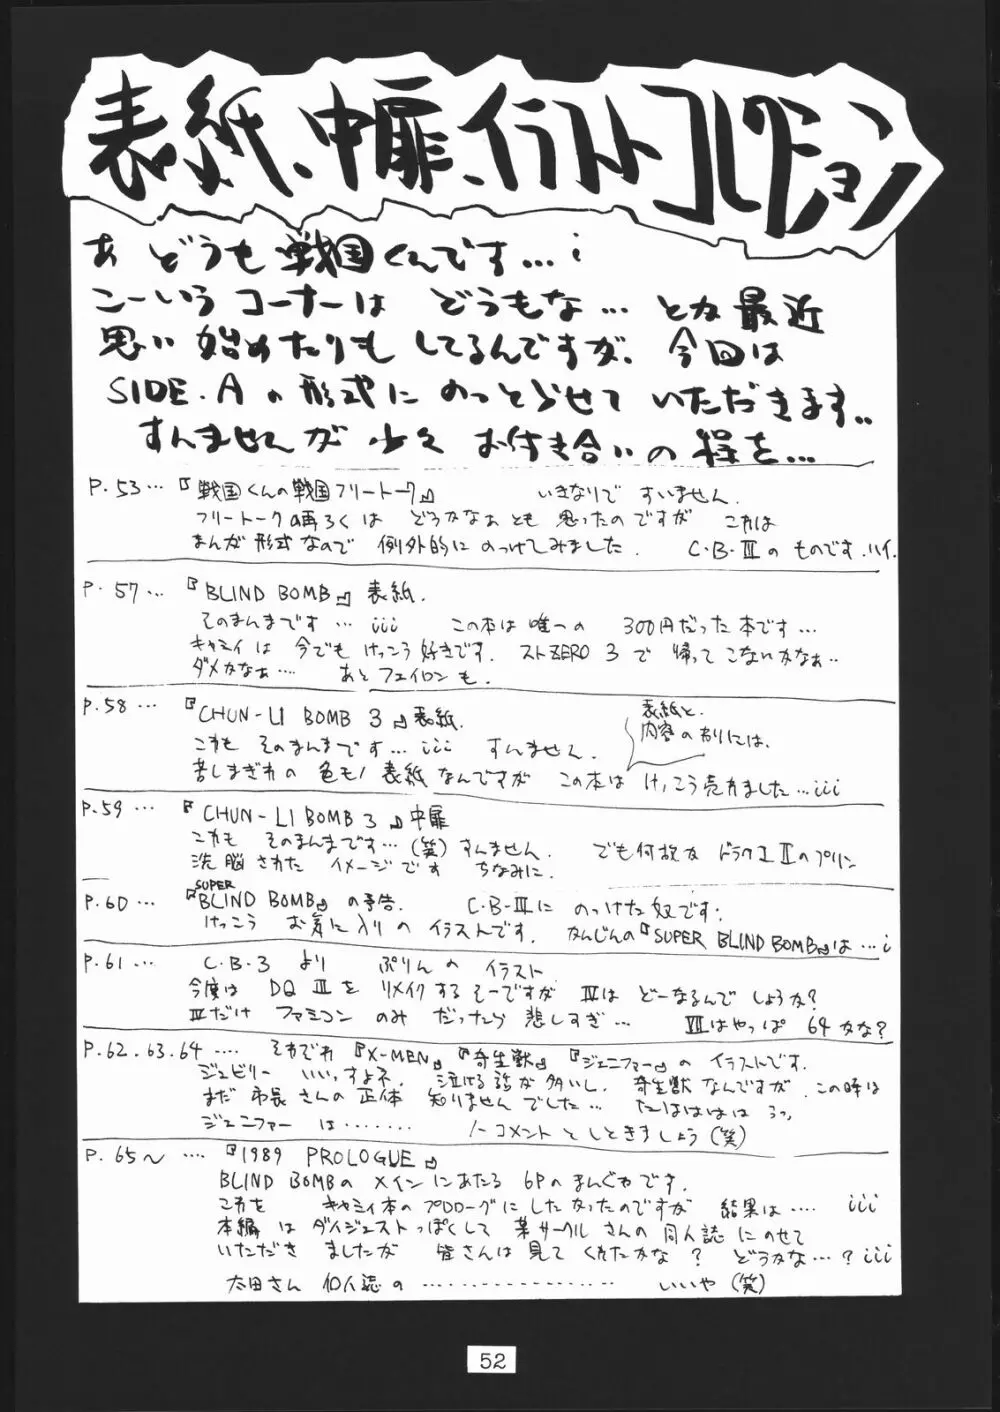 表紙、中扉、イラストコレクション
あ どうも戦国くんです…i
こーいうコーナーは どうもな… とか最近
思い始めたりもしてるんですが、今回は
SIDE.Aの形式に のっとらせて いただきます..
すんませんが 少々 お付き合いの程を…
P.53…『戦国くんの戦国フリートーク』 いきなりで すいません.
フリートークの再ろくは どうかなぁとも 思ったのですが これは
まんが形式なので 例外的に のっけてみました. C・B・Ⅲの ものです.ハイ.
P.57…『BLIND BOMB』表紙.
そのまんまです…iii この本は唯一の 300円だった本です…
キャミィは 今でも けっこう好きです. ストZERO 3で 帰ってこないかなぁ..
ダメかなぁ… あと フェイロンも.
P.58…『CHUN-LI BOMB 3』表紙.
これも そのまんまです…iii すんません.
苦しまぎれの 色モノ表紙なんですが この本は けっこう売れました…iii
表紙と.
内容のわりには.
P.59…『CHUN-LI BOMB 3』中扉
これも そのまんまです…(笑)すんません. でも何故か ドラクエⅡのプリン
洗脳された イメージです ちなみに.
P.60…『SUPER BLIND BOMB』の予告. C・B・Ⅲに のっけた奴です.
けっこう お気に入りの イラストです. かんじんの『SUPER BLIND BOMB』は…i
P.61… C・B・3より ぷりんの イラスト
今度は DQ Ⅲを リメイクするそーですが Ⅳは どーなるんでしょうか?
Ⅳだけ ファミコンのみ だったら 悲しすぎ… Ⅶはやっぱ 64かな?
P.62.63.64…. それぞれ『X-MEN』『寄生獣』『ジェニファー』の イラストです.
ジュビリー いいっすよネ. 泣ける話が多いし. 寄生獣なんですが この時は
まだ 市長さんの正体 知りませんでした… たはははは うっ,
ジェニファーは……. ノーコメントとしときましょう(笑)
P.65〜….『1989 PROLOGUE』
BLIND BOMBの メインにあたる 6Pのまんがです.
これを キャミィ本の プロローグにしたかったのですが 結果は…. iii
本編は ダイジェストっぽくして 某サークルさんの同人誌にのせて
いただき ましたが 皆さんは見てくれたかな? どうかな…?iii
太田さん 個人誌の ………………… いいや(笑)
52